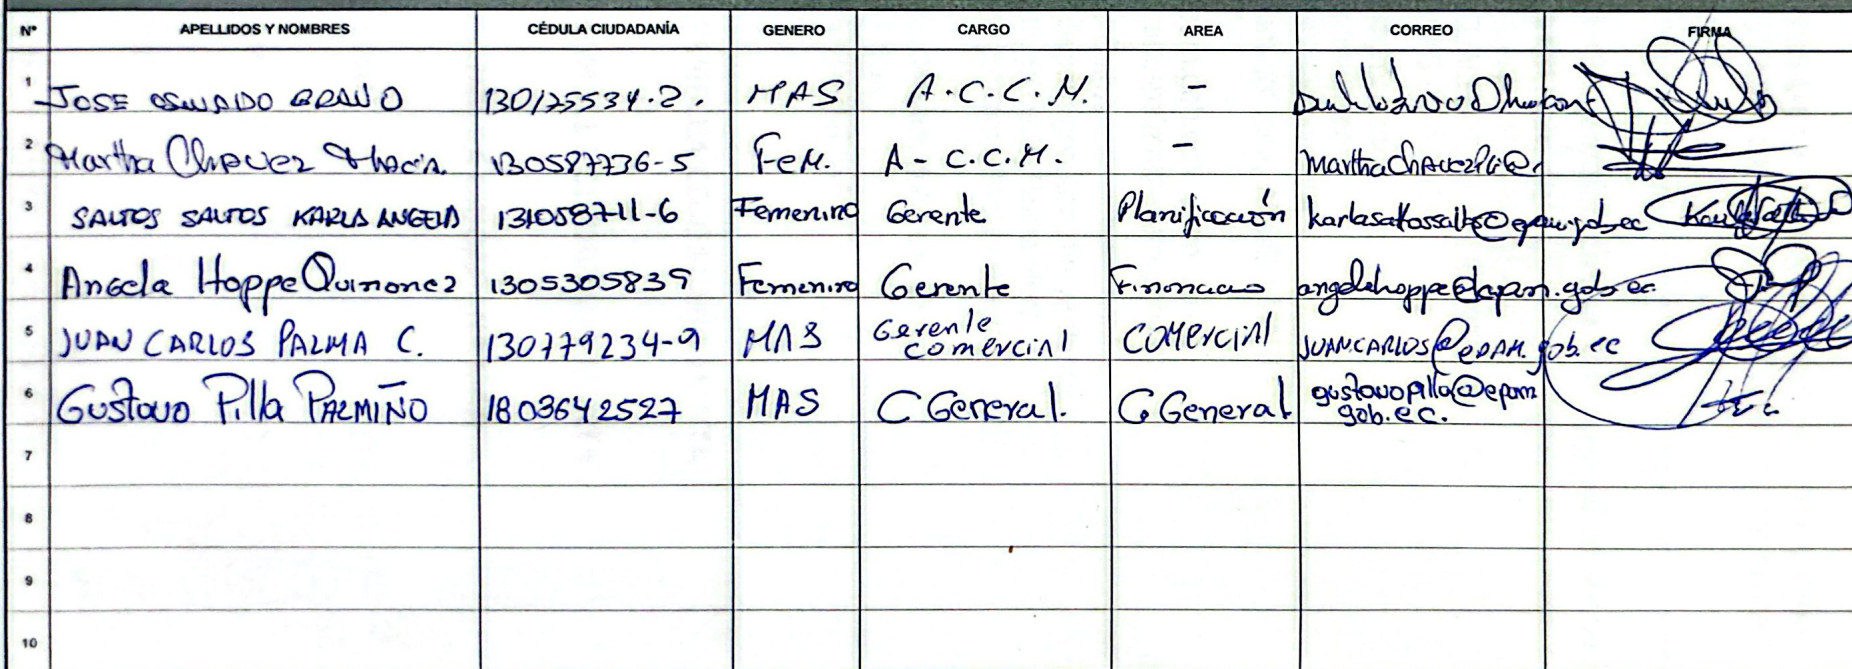 N° APELLIDOS Y NOMBRES CÉDULA CIUDADANÍA GENERO CARGO AREA CORREO FIRMA
1 JOSE OSWALDO BRAVO 130125534-2. MAS A.C.C.M. -
2 Martha Chavez 130587736-5 Fem. A-C.C.M. -
3 SALTOS SALTOS KARLA ANGELA 131058711-6 Femenino Gerente Planificación karlasaltossaltos@epam.gob.ec
4 Angela Hoppe Quinonez 1305305839 Femenino Gerente angelahoppe@epam.gob.ec
5 JUAN CARLOS PALMA C. 130779234-9 MAS Gerente comercial COMERCIAL JUANCARLOS@EPAM.gob.ec
6 Gustavo Pilla PALMIÑO 1803642527 MAS C General. G General gustavopilla@epam
gob.ec.
7
8
9
10